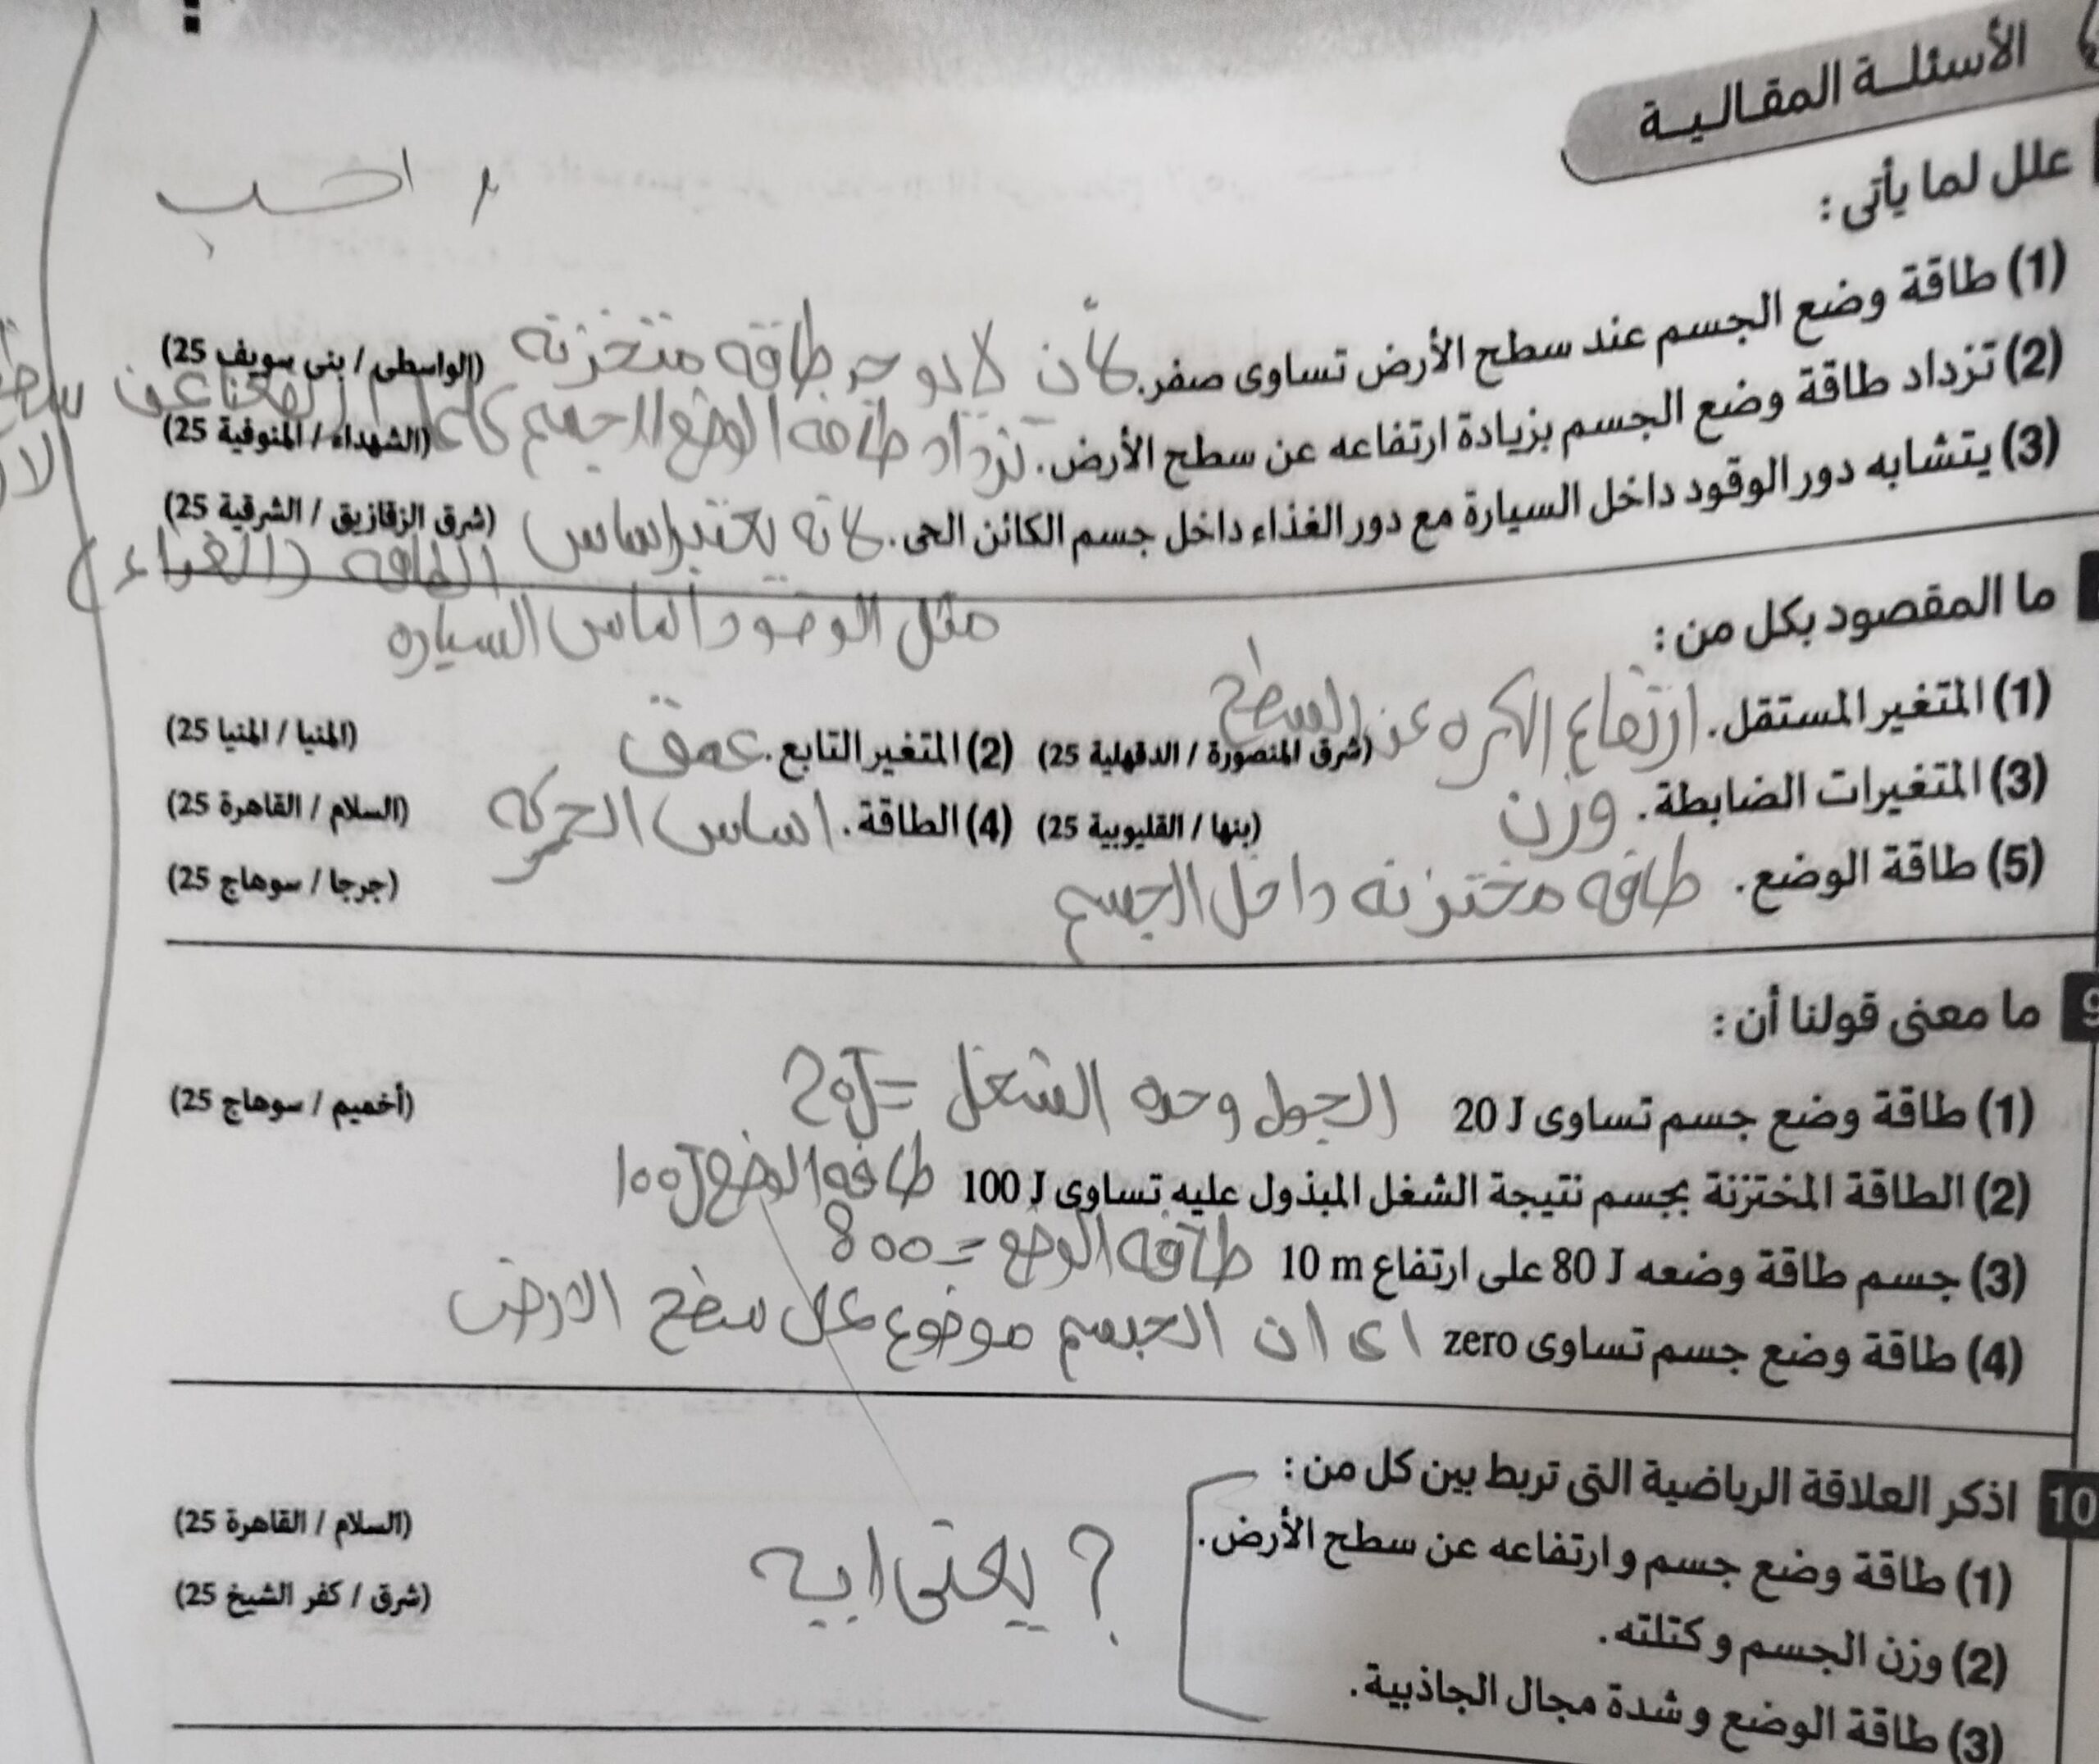 الأسئلة المقالية
علل لما يأتى :
(1) طاقة وضع الجسم عند سطح الأرض تساوى صفر. لأن لا يوجد طاقه متخزنه (الواسطى / بنى سويف 25)
(2) تزداد طاقة وضع الجسم بزيادة ارتفاعه عن سطح الأرض. تزداد طاقه الوضع للجسم كلما ارتفعنا عن سطح الار (الشهداء / المنوفية 25)
(3) يتشابه دور الوقود داخل السيارة مع دور الغذاء داخل جسم الكائن الحى. لانه يعتبر اساس (شرق الزقازيق / الشرقية 25)
الطاقه (الغذاء)
مثل الوقود اساس السياره
ما المقصود بكل من :
(1) المتغير المستقل. ارتفاع الكره عن السطح (شرق المنصورة / الدقهلية 25) (2) المتغير التابع. عمق (المنيا / المنيا 25)
(3) المتغيرات الضابطة. وزن (بنها / القليوبية 25) (4) الطاقة. اساس الحركه (السلام / القاهرة 25)
(5) طاقة الوضع. طاقه مختزنه داخل الجسم (جرجا / سوهاج 25)
9 ما معنى قولنا أن :
(1) طاقة وضع جسم تساوى 20 J الجول وحده الشغل = 20J (أخميم / سوهاج 25)
(2) الطاقة المختزنة بجسم نتيجة الشغل المبذول عليه تساوى 100 J طاقه الوضع 100J
(3) جسم طاقة وضعه 80 J على ارتفاع 10 m طاقه الوضع = 800
(4) طاقة وضع جسم تساوى zero اى ان الجسم موضوع على سطح الارض
10 اذكر العلاقة الرياضية التى تربط بين كل من :
(1) طاقة وضع جسم وارتفاعه عن سطح الأرض. (السلام / القاهرة 25)
؟ يعنى ايه
(2) وزن الجسم وكتلته. (شرق / كفر الشيخ 25)
(3) طاقة الوضع وشدة مجال الجاذبية.